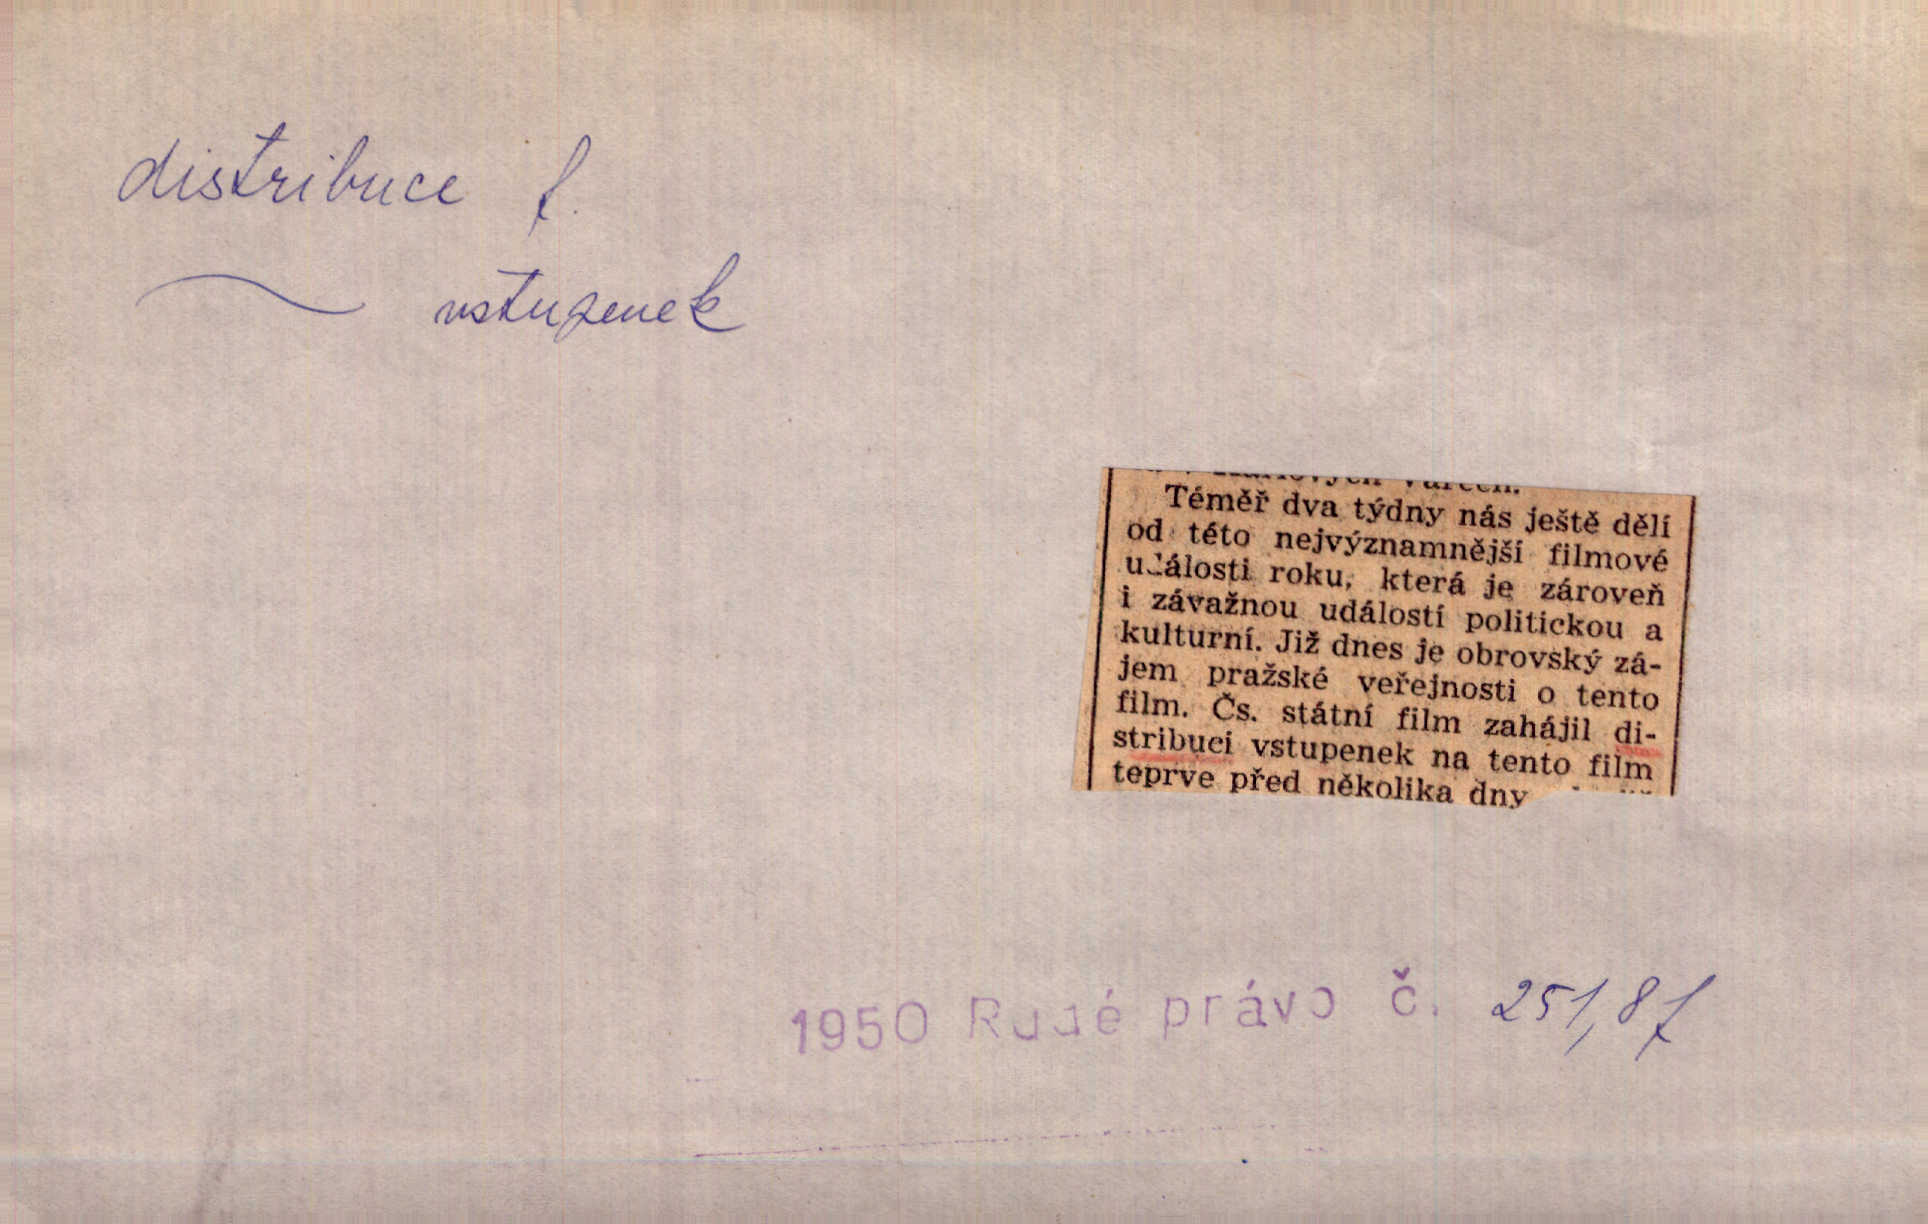 distribuce f.
vstupenek
Karlových Varech.
Téměř dva týdny nás ještě dělí
od této nejvýznamnější filmové
události roku, která je zároveň
i závažnou událostí politickou a
kulturní. Již dnes je obrovský zá-
jem pražské veřejnosti o tento
film. Čs. státní film zahájil di-
stribuci vstupenek na tento film
teprve před několika dny
1950 Rudé právo č. 251, 8f